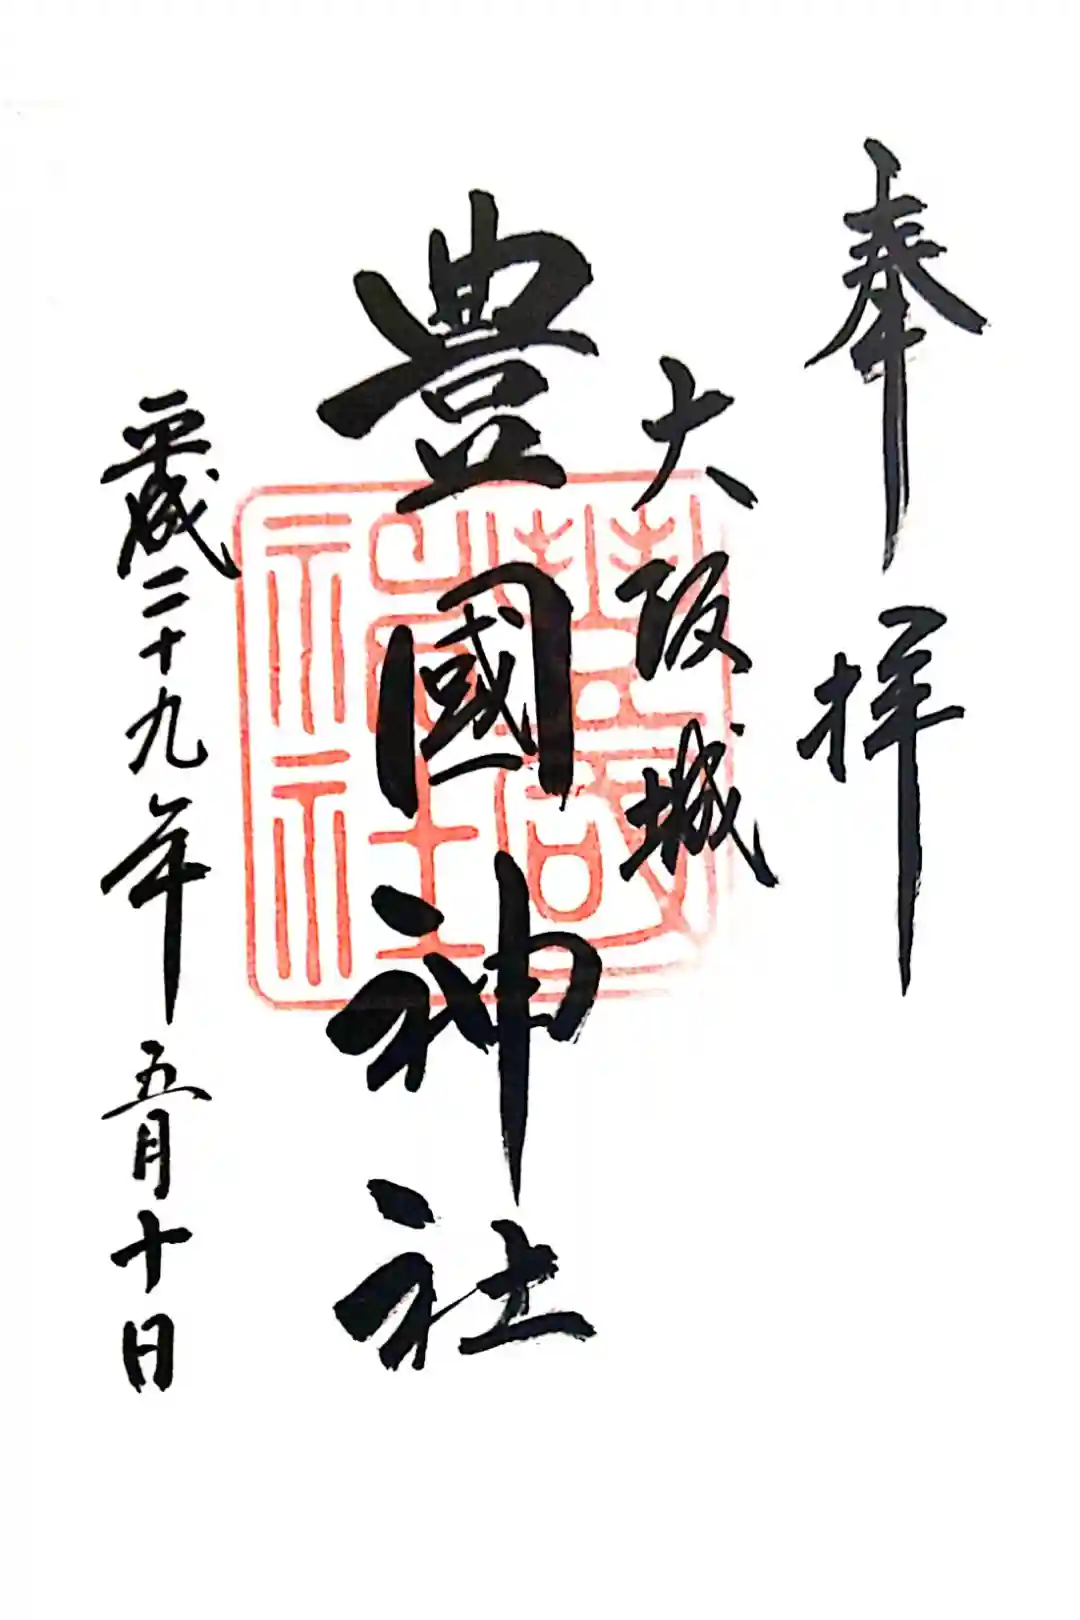 奉拝
大阪城
豊國神社
豊國神社
平成二十九年五月十日